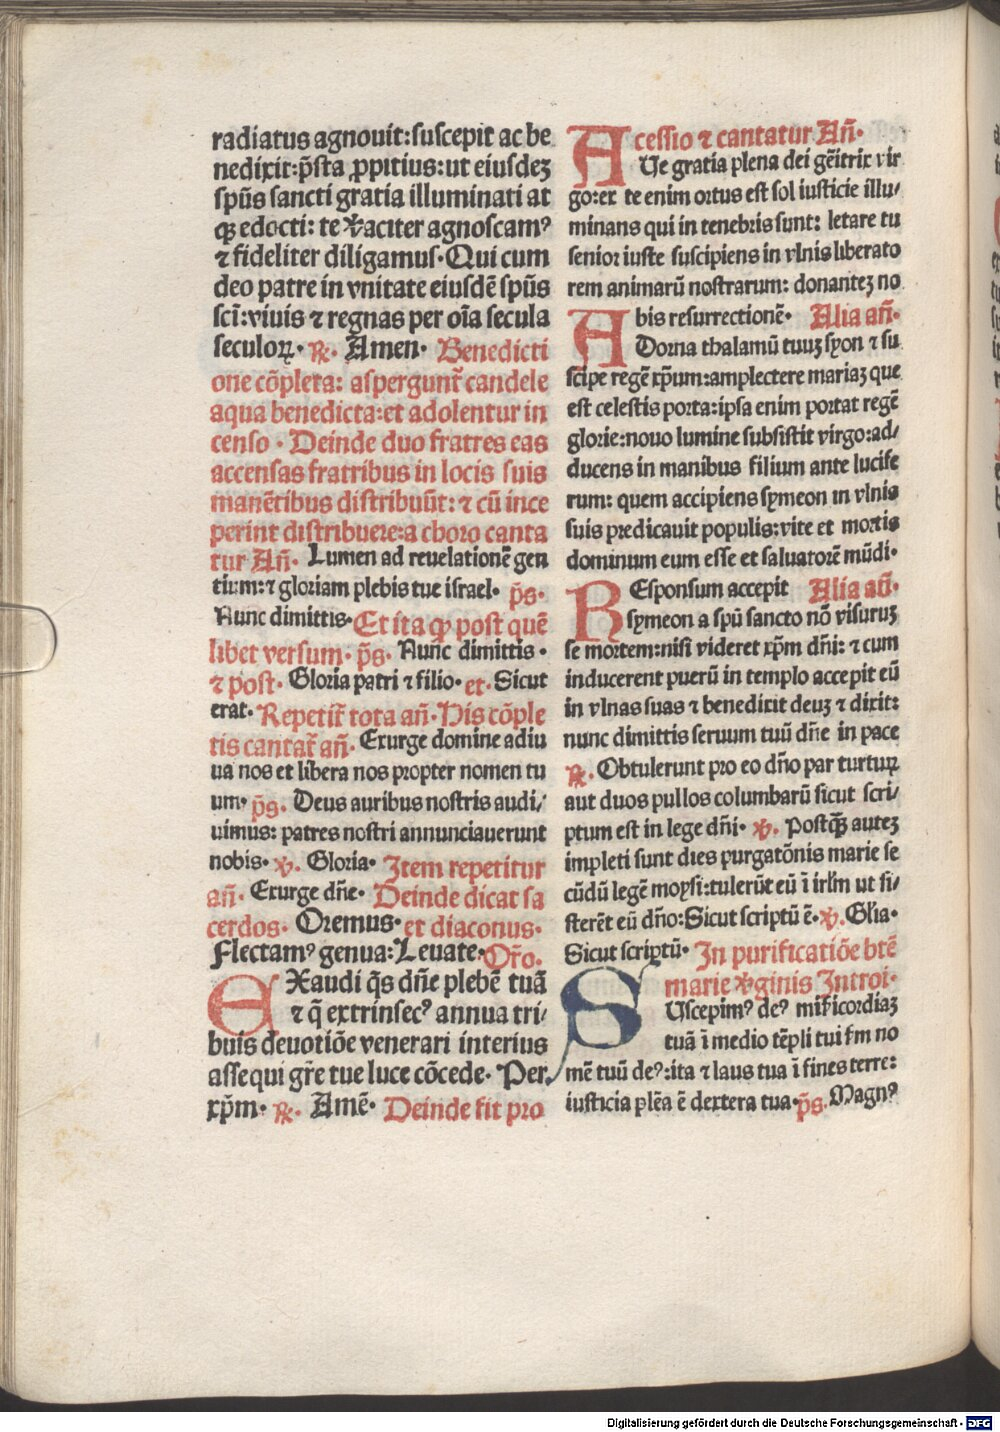 radiatus agnouit:suscepit ac be
nedixit:p̃sta ꝓpitius:ut eiusdeꝫ
spũs sancti gratia illuminati at
qꝫ edocti: te v̾aciter agnoscamꝰ
⁊ fideliter diligamus·Qui cum
deo patre in vnitate eiusdẽ spũs
scĩ:viuis ⁊ regnas per oĩa secula
seculoꝝ· ℟. Amen· Benedicti
one cõpleta: asperguntᷣ candele
aqua benedicta:et adolentur in
censo · Deinde duo fratres eas
accensas fratribus in locis suis
manẽtibus distribuũt: ⁊ cũ ince
perint distribuere:a choro canta
tur Añ· Lumen ad reuelationẽ gen
tium:⁊ gloriam plebis tue israel· p̃s·
Nunc dimittis·Et ita qꝫ post quẽ
libet versum· p̃s. Nunc dimittis ·
⁊ post· Gloria patri ⁊ filio· et·Sicut
erat·Repetitᷣ tota añ·His cõple
tis cantatᷣ añ· Exurge domine adiu
ua nos et libera nos propter nomen tu
um· p̃s. Deus auribus nostris audi/
uimus: patres nostri annunciauerunt
nobis· ℣. Gloria· Item repetitur
añ· Exurge dñe· Deinde dicat sa
cerdos· Oremus·et diaconus·
Flectamꝰ genua:Leuate·Oro.
EXaudi q̃s dñe plebẽ tuã
⁊ q̃ extrinsecꝰ annua tri/
buis deuotiõe venerari interius
assequi gr̃e tue luce cõcede· Per
xp̃m· ℟. Amẽ· Deinde fit pro
cessio ⁊ cantatur Añ·
AUe gratia plena dei gẽitrix vir
go:ex te enim ortus est sol iusticie illu/
minans qui in tenebris sunt: letare tu
senior iuste suscipiens in vlnis liberato
rem animarũ nostrarum: donanteꝫ no
bis resurrectionẽ· Alia añ·
ADorna thalamũ tuuꝫ syon ⁊ su
scipe regẽ xp̃um:amplectere mariaꝫ que
est celestis porta:ipsa enim portat regẽ
glorie:nouo lumine subsistit virgo:ad/
ducens in manibus filium ante lucife
rum: quem accipiens symeon in vlnis
suis predicauit populis:vite et mortis
dominum eum esse et saluatorẽ mũdi·
REsponsum accepit Alia añ·
symeon a spũ sancto nõ visuruꝫ
se mortem:nisi videret xp̃m dñi: ⁊ cum
inducerent puerũ in templo accepit eũ
in vlnas suas ⁊ benedixit deuꝫ ⁊ dixit:
nunc dimittis seruum tuũ dñe in pace
℟. Obtulerunt pro eo dño par turtuꝝ
aut duos pullos columbarũ sicut scri/
ptum est in lege dñi· ℣. Postqꝫ̃ auteꝫ
impleti sunt dies purgatõnis marie se
cũdũ legẽ moysi:tulerũt eũ ĩ irlm̃ ut si/
sterẽt eũ dño:Sicut scriptũ ẽ·℣. Gl̃ia·
Sicut scriptũ· In purificatiõe btẽ
marie v̾ginis Introi·
SUscepimꝰ deꝰ mis̃icordiaꝫ
tuã ĩ medio tẽpli tui s̃m no
mẽ tuũ deꝰ:ita ⁊ laus tua ĩ fines terre:
iusticia plẽa ẽ dextera tua·p̃s. Magnꝰ
Digitalisierung gefördert durch die Deutsche Forschungsgemeinschaft · DFG